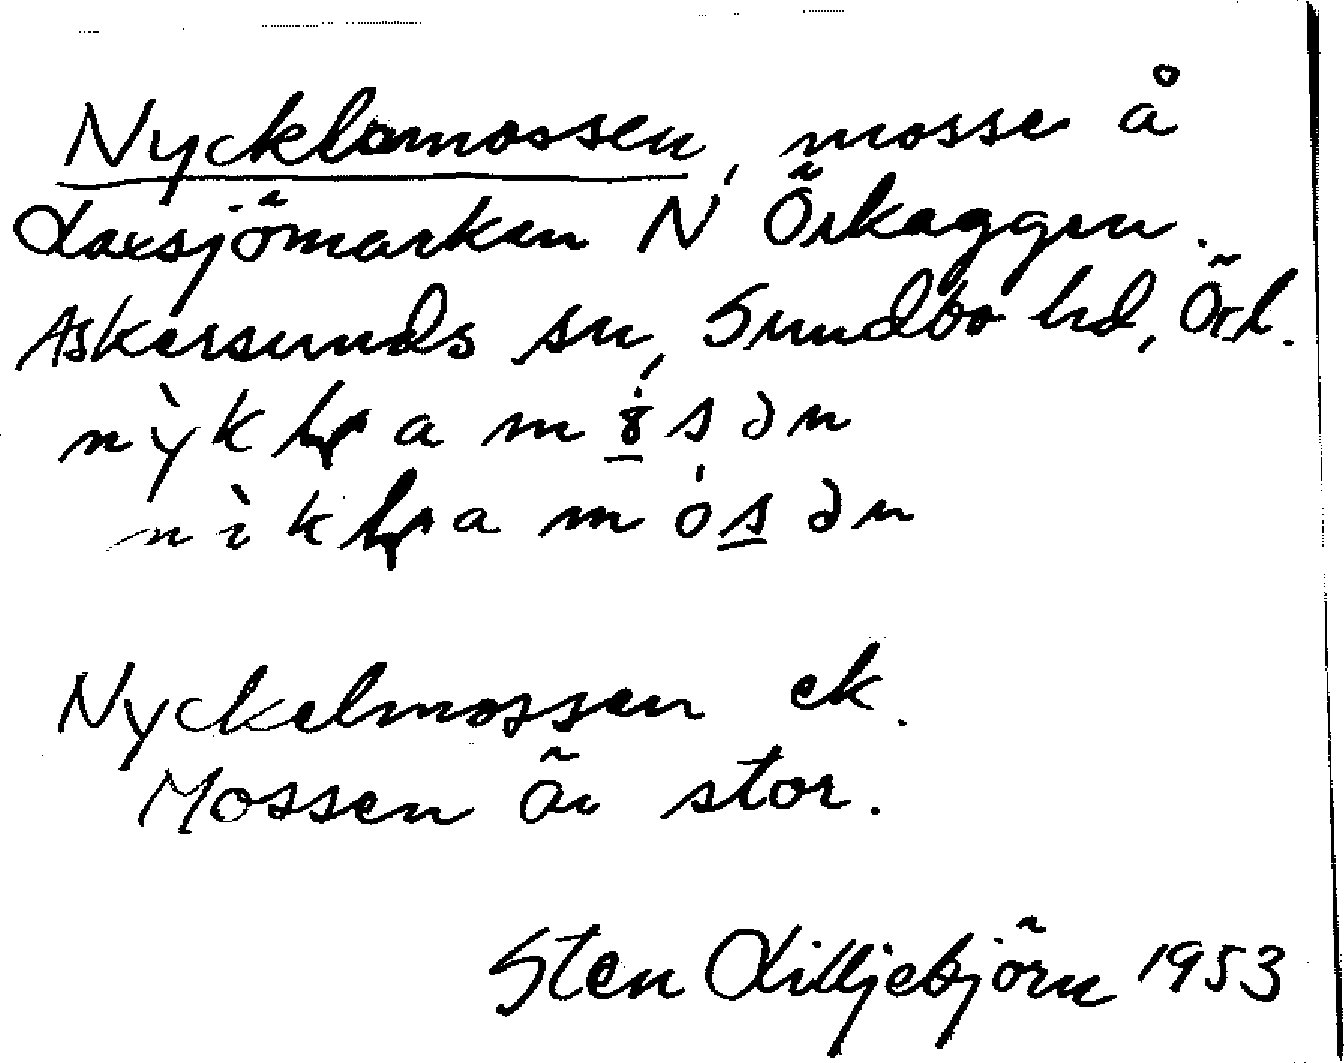 Nycklamossen, mosse å
Laxsjömarken N Örkaggen.
Askersunds sn, Sundbo hd, Örl.
Nyckelmossen ek.
Mossen är stor.
Sten Lilljebjörn 1953